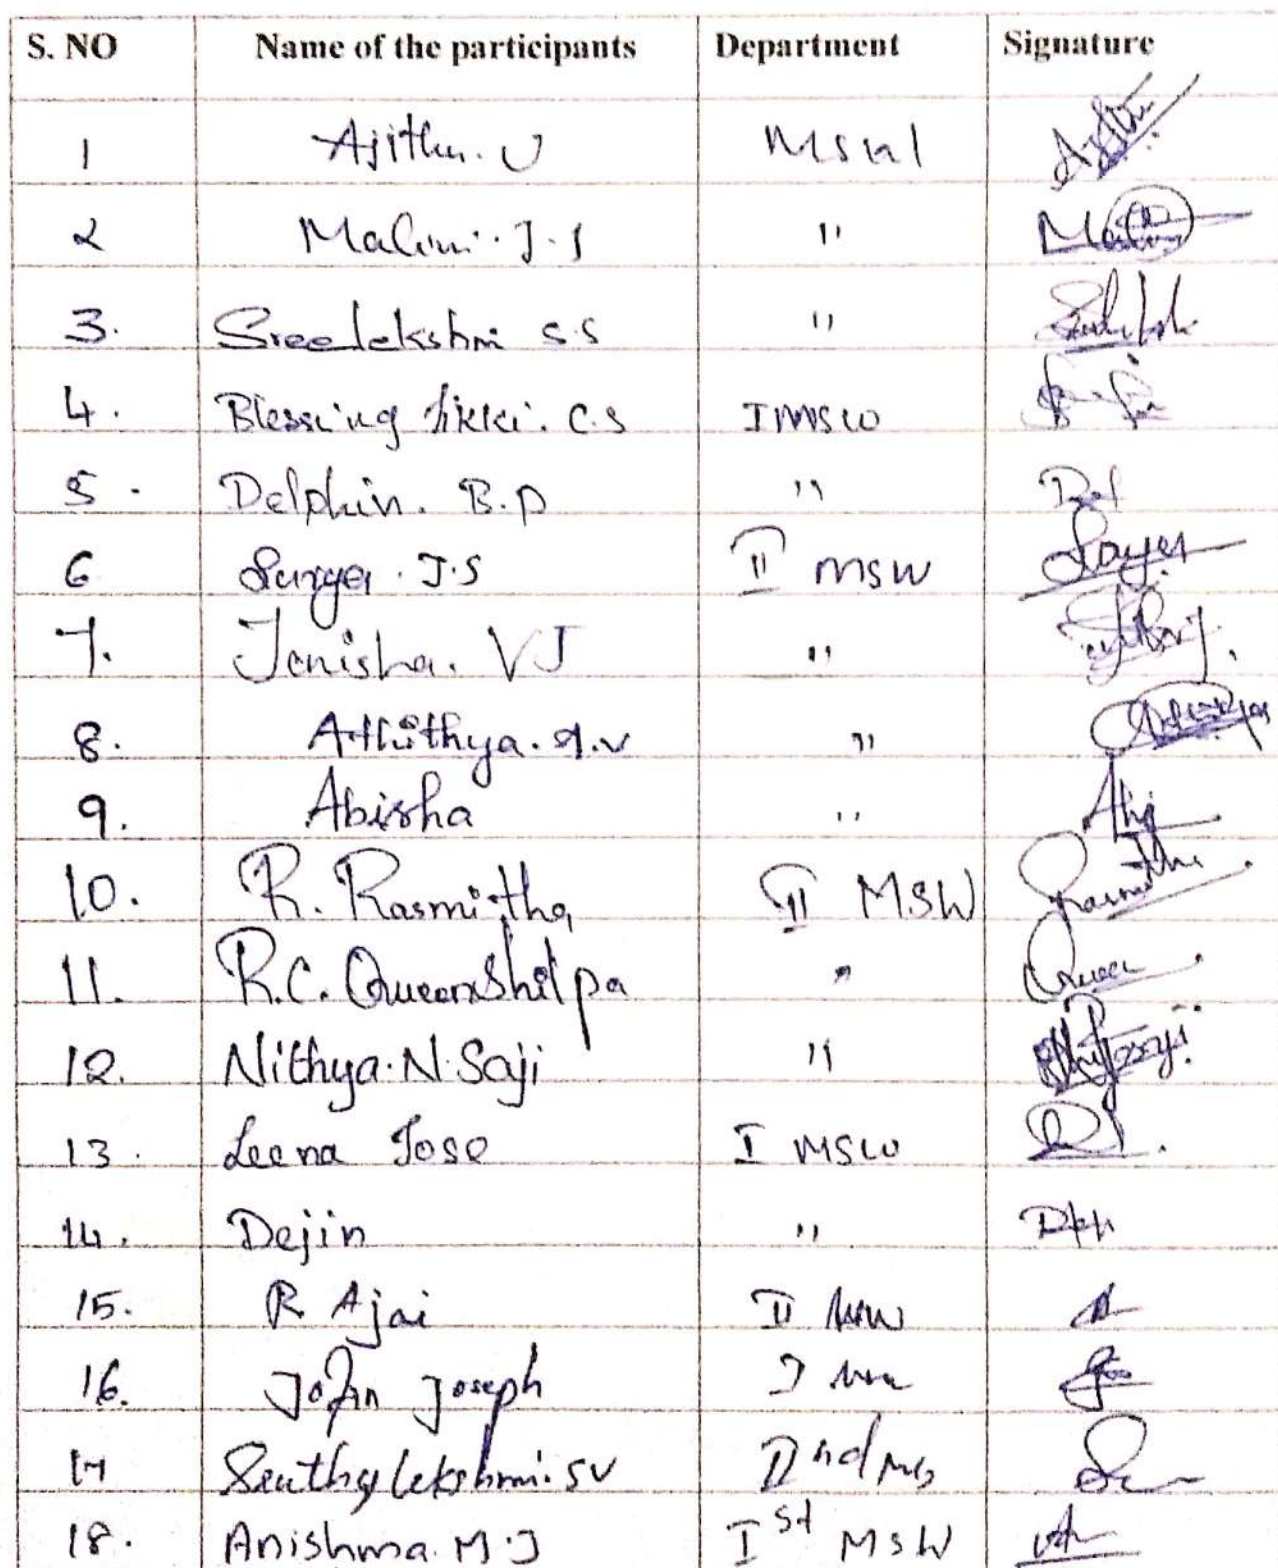 S. NO Name of the participants Department Signature
1 Ajitha. U MSW I
2 Malini. J. S "
3. Sreelekshmi S.S "
4. Blessing Jikki. C.S I MSW
5. Delphin. B.P " Del
6 Surya. J.S II MSW Surya
7. Jenisha. VJ "
8. Athithya. A.V "
9. Abisha " Abi
10. R. Rasmitha II MSW Rasmitha
11. R.C. Queenshilpa " Queen
12. Nithya. N. Saji "
13. Leena Jose I MSW
14. Dejin "
15. R. Ajai II MSW
16. John Joseph I
17 Seuthylekshmi. SV II nd
18. Anishma. M. J I st MSW